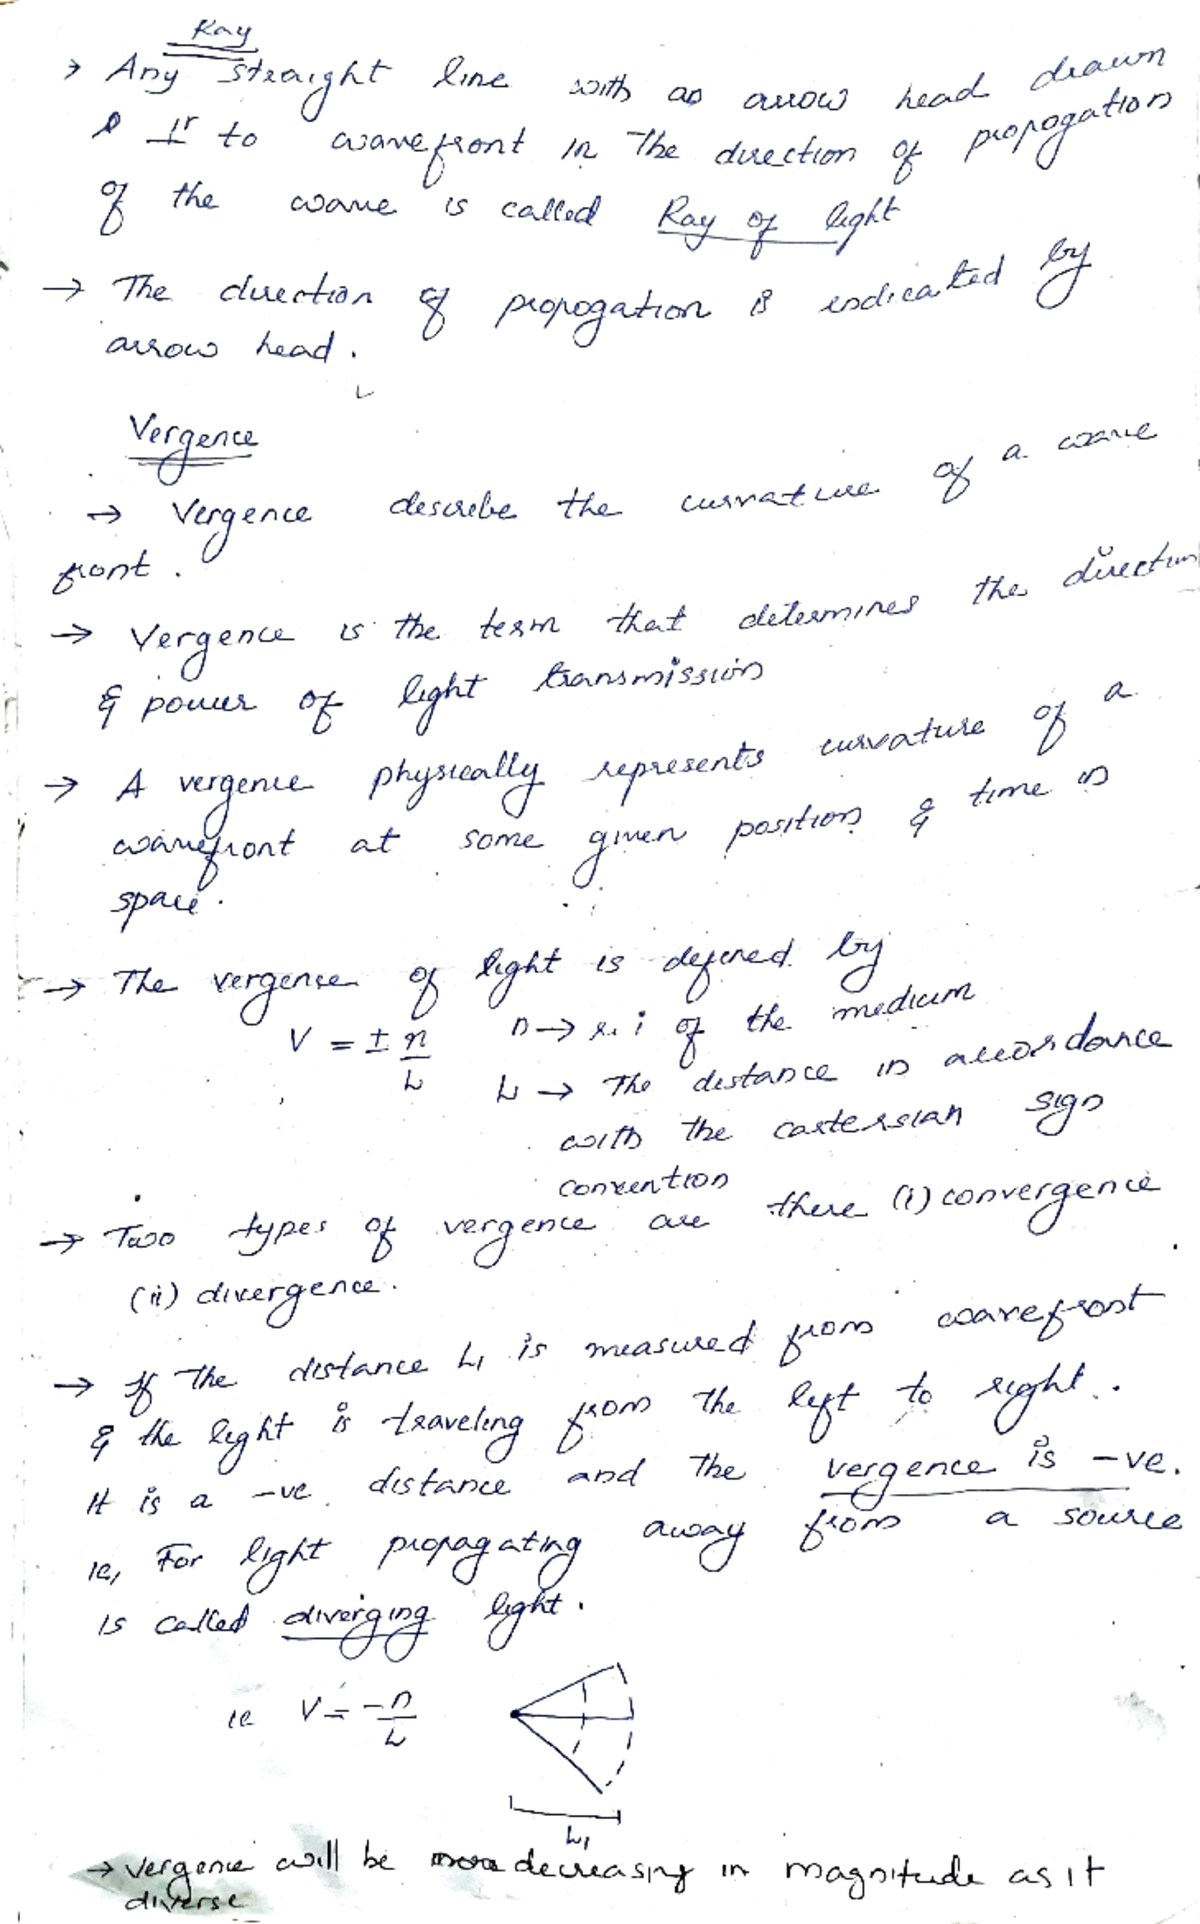 Ray
→ Any straight line with an arrow head drawn
⊥r to wavefront in the direction of propogation
of the wave is called Ray of light
→ The direction of propogation is indicated by
arrow head.
Vergence
→ Vergence describe the curvature of a wave
front.
→ Vergence is the term that determines the direction
& power of light transmission
→ A vergence physically represents curvature of a
wavefront at some given position & time in
space.
→ The vergence of light is defined by
V = ± n/L n → r.i of the medium
L → The distance in accordance
with the cartersian sign
convention
→ Two types of vergence are there (i) convergence
(ii) divergence.
→ If the distance L1 is measured from wavefront
& the light is traveling from the left to right.
It is a -ve distance and the vergence is -ve.
ie, For light propagating away from a source
is called diverging light.
ie V = -n/L
L1
→ Vergence will be decreasing in magnitude as it
diverse